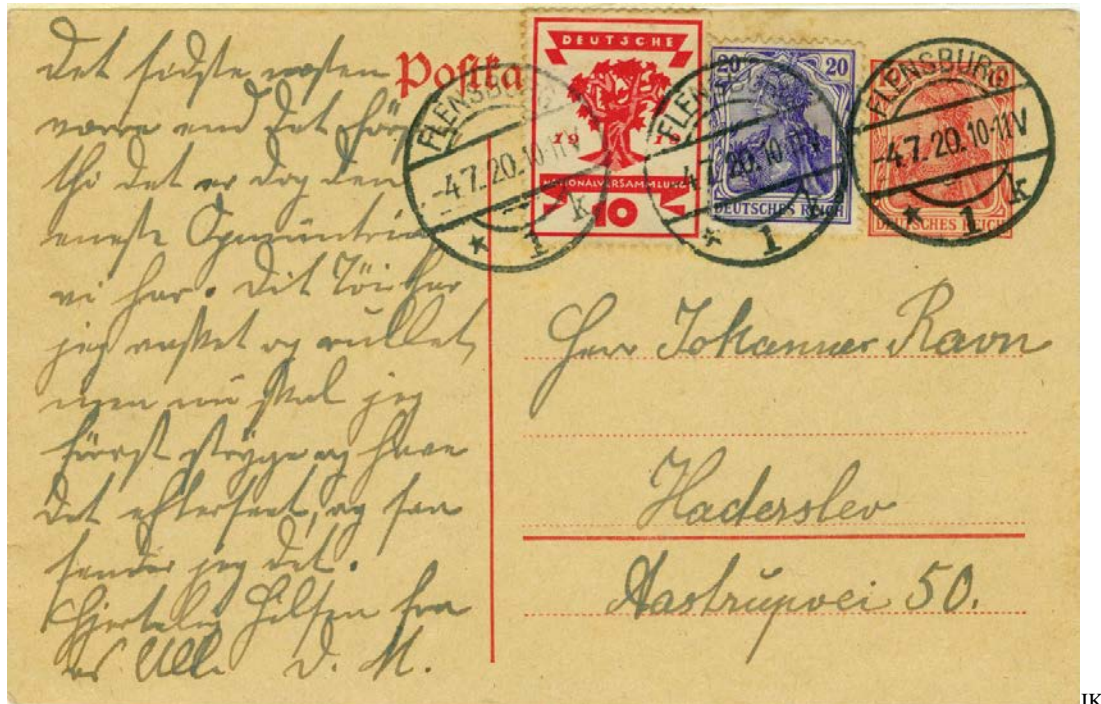 Det sidste næsten
værre end det
thi det er dog den
eneste
vi har. Dit Töi har
jeg vasket og rullet,
men nu skal jeg
först stryge og have
det efterseet, og saa
sender jeg det.
Hjertelig Hilsen fra
os Alle. D. M.
Postka
DEUTSCHE
19 19
NATIONALVERSAMMLUNG
10
20 20
DEUTSCHES REICH
DEUTSCHES REICH
FLENSBURG
-4.7.20.10-11V
* 1 k
FLENSBURG
-4.7.20.10-11V
* 1 k
FLENSBURG
-4.7.20.10-11V
* 1 k
Herr Johannes Ravn
Haderslev
Aastrupvei 50.
JK